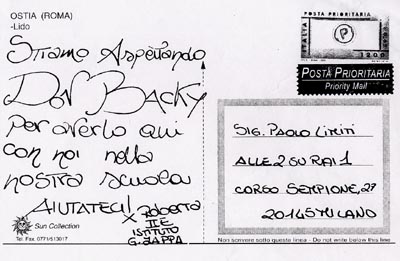 OSTIA (ROMA)
-Lido
STIAMO ASPETTANDO
DON BACKY
PER AVERLO QUI
CON NOI NELLA
NOSTRA SCUOLA
AIUTATECI!
X ROBERTA
II E
ISTITUTO
G. ZAPPA
Sun Collection
Tel. Fax. 0771/513017
POSTA PRIORITARIA
P
ITALIA
1200
POSTA PRIORITARIA
Priority Mail
SIG. PAOLO LIMITI
ALLE 2 SU RAI 1
CORSO SEMPIONE, 27
20145 MILANO
Non scrivere sotto questa linea - Do not write below this line